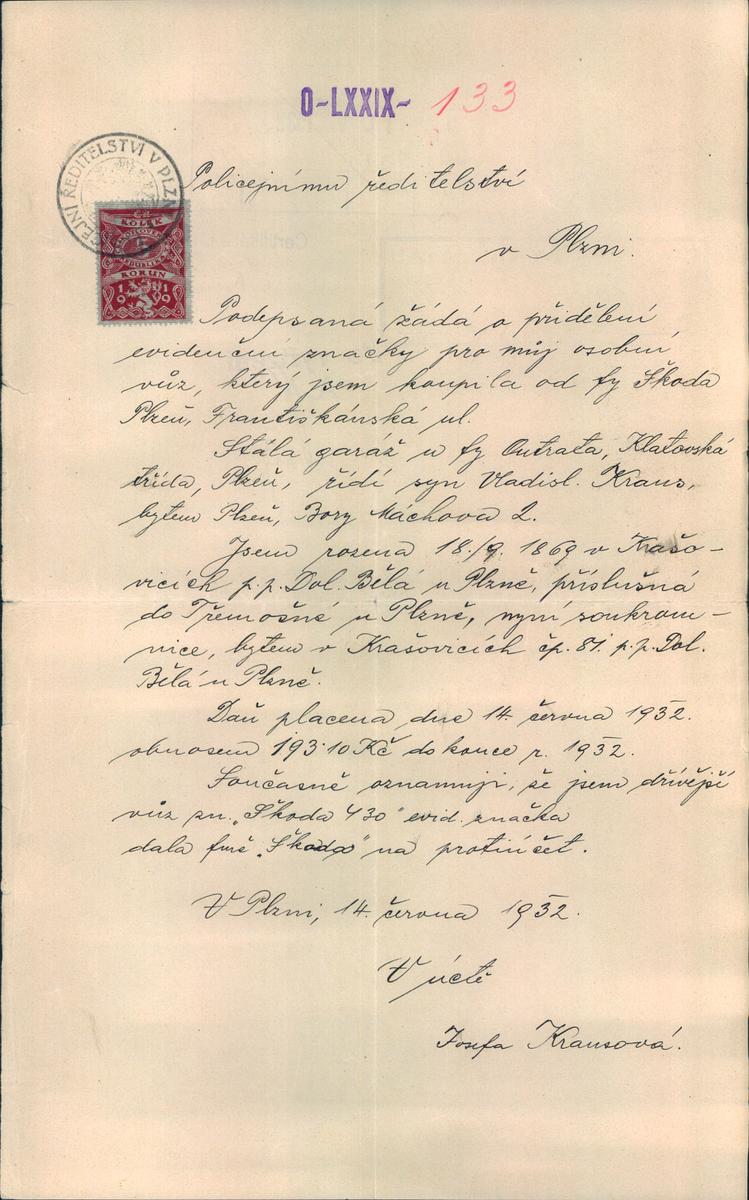 O-LXXIX- 133
POLICEJNÍ ŘEDITELSTVÍ V PLZNI
KOLEK
REPUBLIKA
KORUN
10 10
Policejnímu ředitelství
v Plzni.
Podepsaná žádá o přidělení
evidenční značky pro můj osobní
vůz, který jsem koupila od fy Škoda
Plzeň, Františkánská ul.
Stálá garáž u fy Outrata, Klatovská
třída, Plzeň, řídí syn Vladisl. Kraus,
bytem Plzeň, Bory Máchova 2.
Jsem rozena 18./9. 1869 v Krašo-
vicích p.p. Dol. Bělá u Plzně, příslušná
do Třemošné u Plzně, nyní soukrom-
nice, bytem v Krašovicích čp. 81. p.p. Dol.
Bělá u Plzně.
Daň placena dne 14. června 1932.
obnosem 193·10 Kč do konce r. 1932.
Současně oznamuji, že jsem dřívější
vůz zn. „Škoda 430" evid. značka
dala firmě „Škoda" na protiúčet.
V Plzni, 14. června 1932.
V úctě
Josefa Krausová.